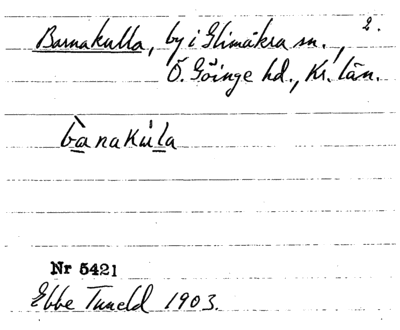 2.
Barnakulla, by i Glimåkra sn.,
Ö. Göinge hd., Kr. län.
bànakùla
Nr 5421
Ebbe Tuneld 1903.